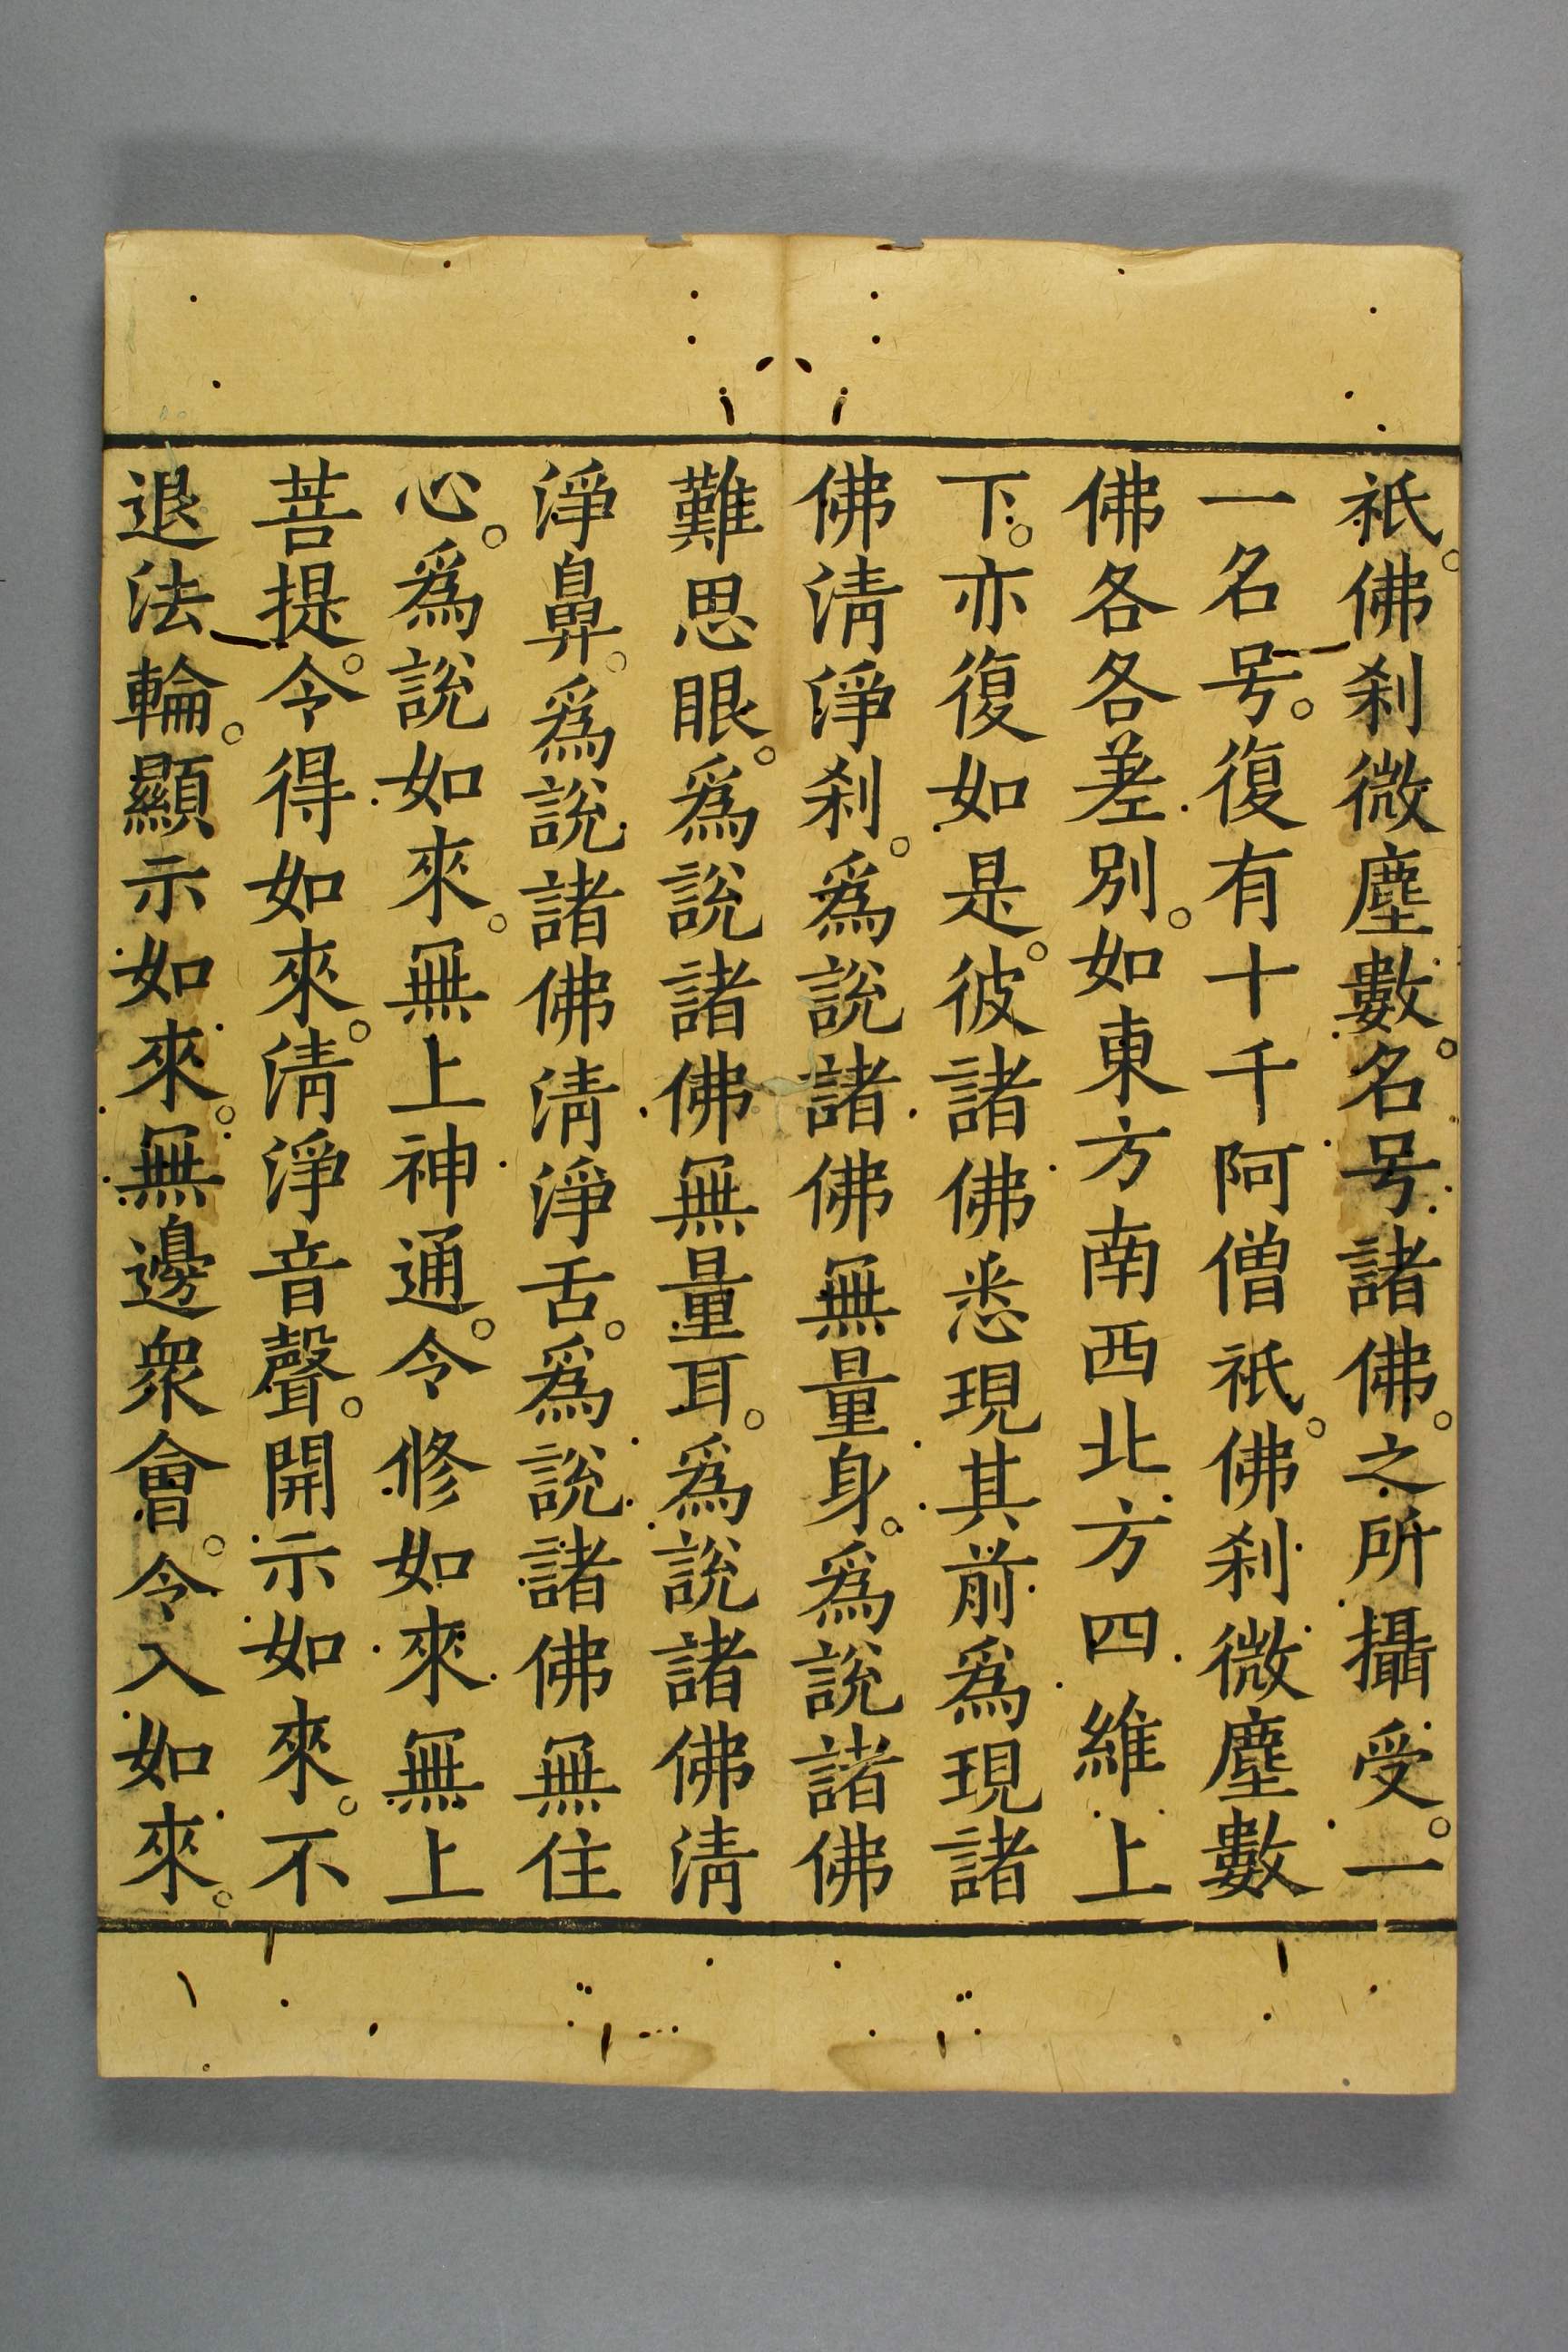 祇。佛刹微塵數。名号諸佛。之所攝受。一
一名号。復有十千阿僧祇。佛刹微塵數
佛各各差別。如東方南西北方四維上
下。亦復如是。彼諸佛悉現其前為現諸
佛清淨刹。為說諸佛無量身。為說諸佛
難思眼。為說諸佛無量耳。為說諸佛清
淨鼻。為說諸佛清淨舌。為說諸佛無住
心。為說如來。無上神通。令修如來無上
菩提。令得如來。清淨音聲。開示如來。不
退法輪。顯示如來。無邊眾會。令入如來。